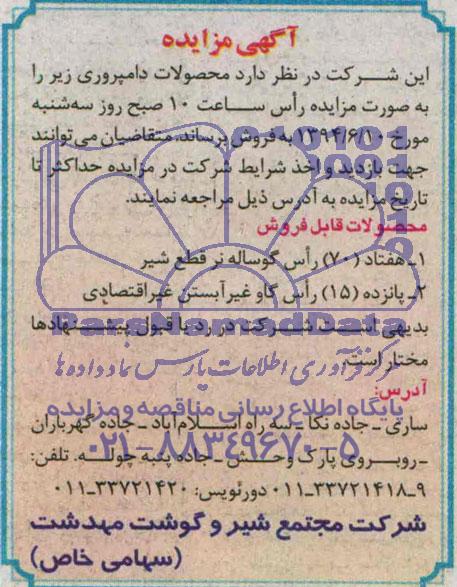 آگهی مزایده
این شرکت در نظر دارد محصولات دامپروری زیر را
به صورت مزایده رأس ساعت ۱۰ صبح روز سه‌شنبه
مورخ ۱۳۹۴/۶/۱۰ به فروش برساند. متقاضیان می‌توانند
جهت بازدید و اخذ شرایط شرکت در مزایده حداکثر تا
تاریخ مزایده به آدرس ذیل مراجعه نمایند.
محصولات قابل فروش
۱ـ هفتاد (۷۰) رأس گوساله نر قطع شیر
۲ـ پانزده (۱۵) رأس گاو غیرآبستن غیراقتصادی
بدیهی است شرکت در رد یا قبول پیشنهادها
مختار است.
آدرس:
ساری ـ جاده نکا ـ سه راه اسلام‌آباد ـ جاده گهرباران
ـ روبروی پارک وحش ـ جاده پنبه چوله. تلفن:
۹ـ۳۳۷۲۱۴۱۸ـ۰۱۱ دورنویس: ۳۳۷۲۱۴۲۰ـ۰۱۱
شرکت مجتمع شیر و گوشت مهدشت
(سهامی خاص)
ParsNamadData
مرکز فرآوری اطلاعات پارس نماد داده ها
پایگاه اطلاع رسانی مناقصه و مزایده
۰۲۱-۸۸۳۴۹۶۷۰-۵